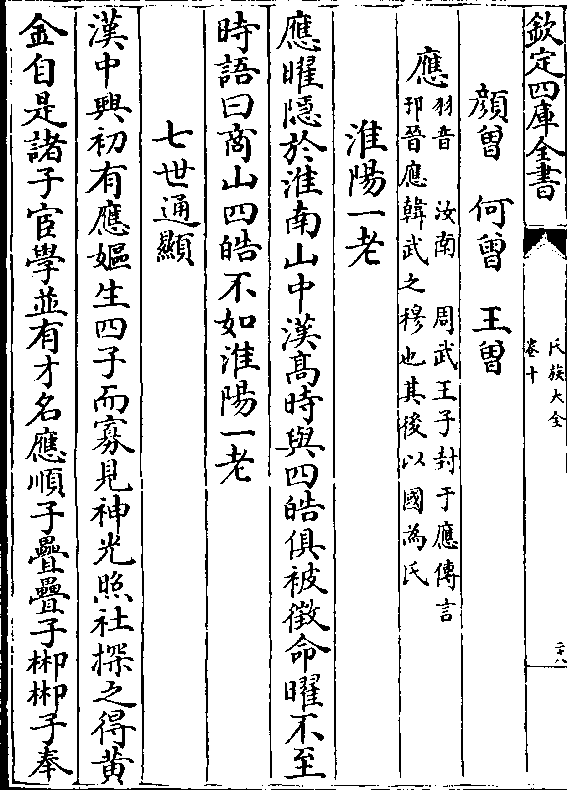 欽定四庫全書
氏族大全
卷十
二十八
顔曾　何曾　王曾
應
羽音　汝南　周武王子封于應傳言
邘晉應韓武之穆也其後以國為氏
淮陽一老
應曜隱於淮南山中漢髙時與四皓俱被徵命曜不至
時語曰商山四皓不如淮陽一老
七世通顯
漢中興初有應嫗生四子而寡見神光照社探之得黄
金自是諸子宦學並有才名應順子疊疊子郴郴子奉